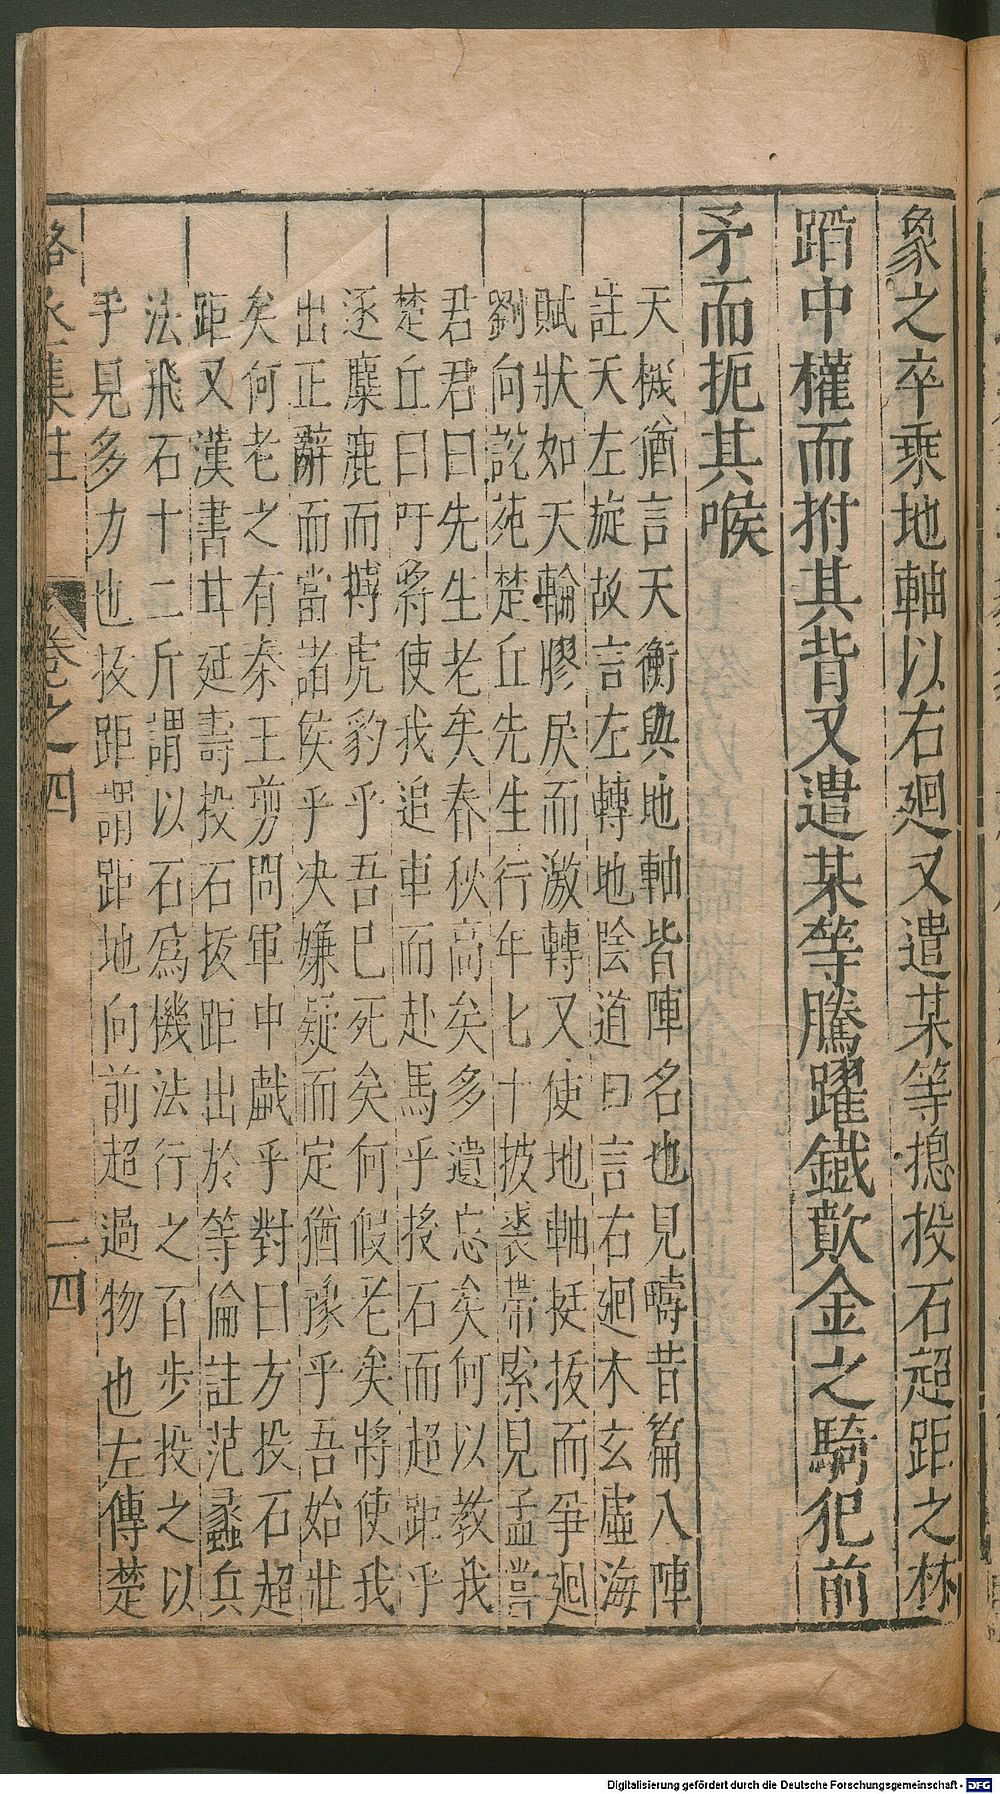 象之卒乘地軸以右廻又遣某等摠投石超距之材
蹈中權而拊其背又遣某等騰躍鐵歕金之騎犯前
矛而扼其喉
天機猶言天衡與地軸皆陣名也見疇昔篇八陣
註天左旋故言左轉地陰道曰言右廻木玄虛海
賦狀如天輪膠戾而激轉又使地軸挺拔而爭廻
劉向說苑楚丘先生行年七十披裘帶索見孟嘗
君君曰先生老矣春秋高矣多遺忘矣何以教我
楚丘曰吁將使我追車而赴馬乎投石而超距乎
逐麋鹿而搏虎豹乎吾巳死矣何假老矣將使我
出正辭而當諸侯乎决嫌疑而定猶豫乎吾始壯
矣何老之有秦王剪問軍中戲乎對曰方投石超
距又漢書甘延壽投石拔距出於等倫註范蠡兵
法飛石十二斤謂以石爲機法行之百步投之以
手見多力也拔距謂距地向前超過物也左傳楚
集註
卷之四
二四
Digitalisierung gefördert durch die Deutsche Forschungsgemeinschaft - DFG